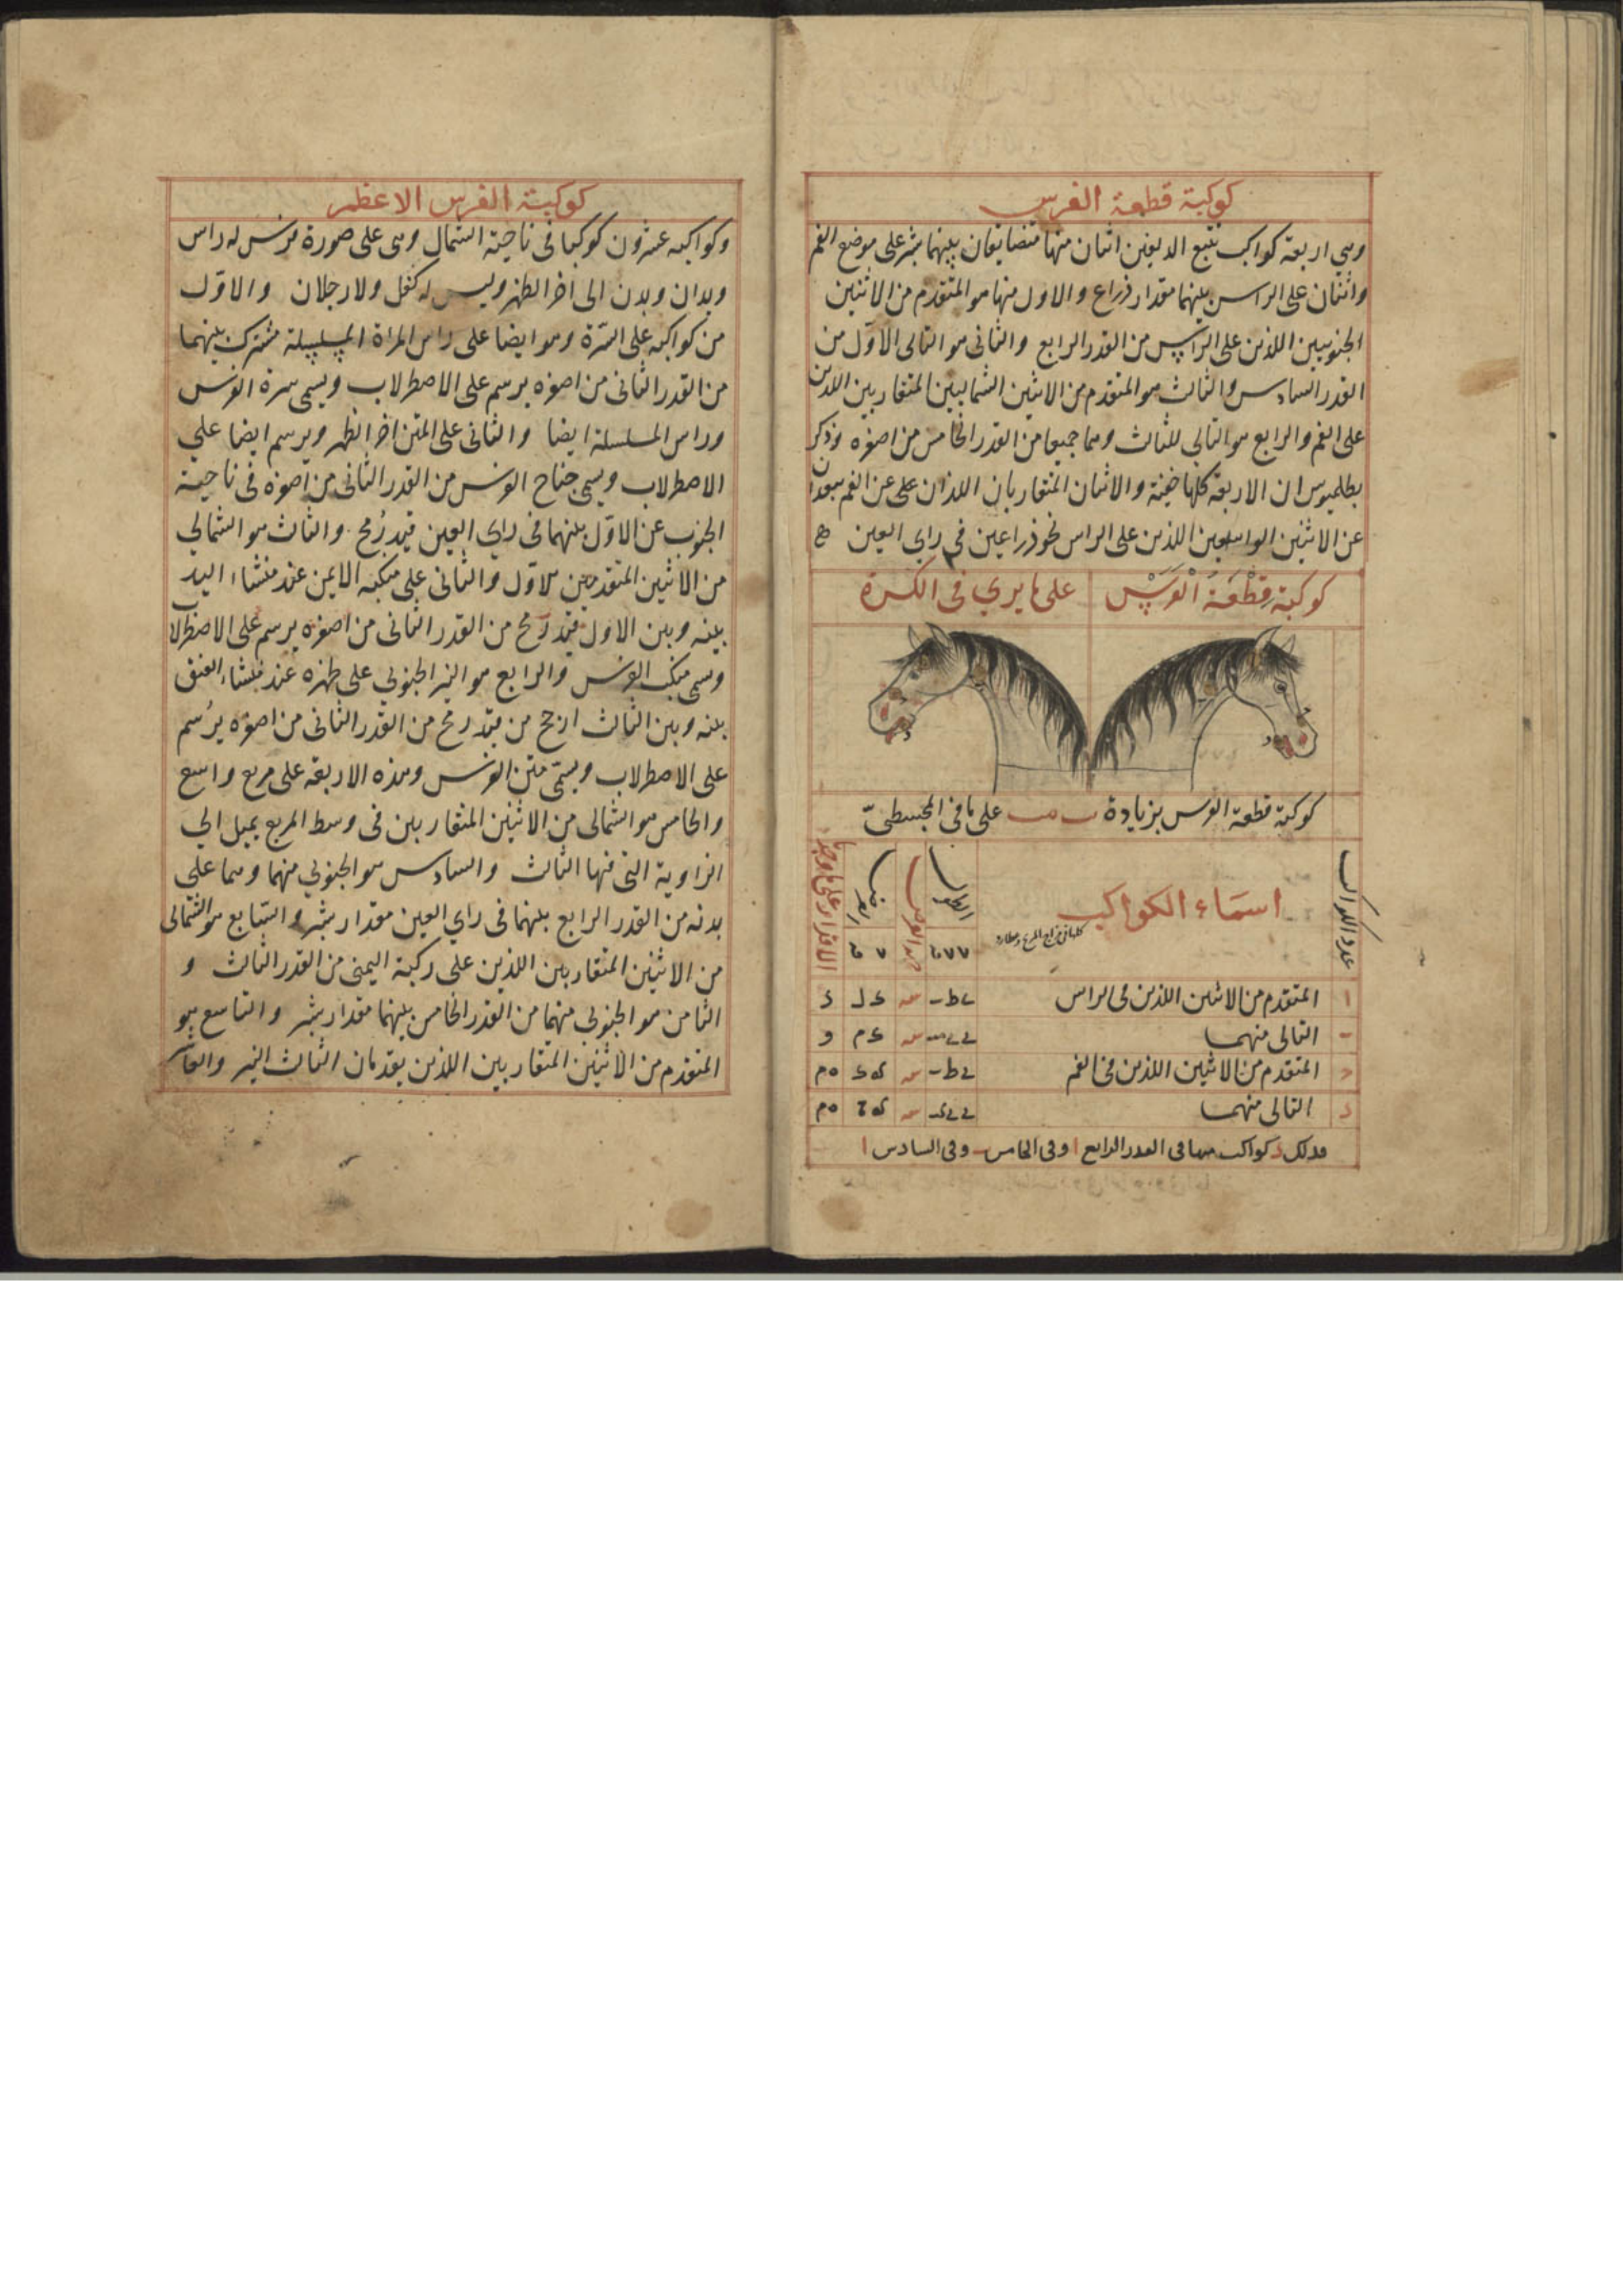 كوكبة قطعة الفرس
وهي اربعة كواكب تتبع الدلفين اثنان منها متضايقان بينهما شبر على موضع الفم
واثنان على الراس بينهما مقدار ذراع والاول منها هو المتقدم من الاثنين
الجنوبيين اللذين على الراس من القدر الرابع والثانى هو التالى الاول من
القدر السادس والثالث هو المتقدم من الاثنين الشماليين المتقاربين اللذين
على الفم والرابع هو التالي للثالث وهما جميعا من القدر الخامس من اصغره وذكر
بطلميوس ان الاربعة كلها خفية والاثنان المتقاربان اللذان على الفم يبعدان
عن الاثنين الواسعين اللذين على الراس نحو ذراعين في راي العين
كوكبة قطعة الفرس على ما يرى فى الكرة
كوكبة قطعة الفرس بزيادة على ما في المجسطي
عدد الكواكب
اسماء الكواكب
الطول
جهة العرض
العرض
الاقدار على ما وجد
١ المتقدم من الاثنين اللذين فى الراس
التالى منهما
المتقدم من الاثنين اللذين فى الفم
التالى منهما
فذلك د كواكب منها فى القدر الرابع ا وفى الخامس ب وفى السادس ا
كوكبة الفرس الاعظم
وكواكبه عشرون كوكبا فى ناحية الشمال وهى على صورة فرس له راس
ويدان وبدن الى اخر الظهر وليس له كفل ولا رجلان والاول
من كواكبه على السرة وهو ايضا على راس المراة المسلسلة مشترك بينهما
من القدر الثانى من اصغره يرسم على الاصطرلاب ويسمى سرة الفرس
وراس المسلسلة ايضا والثانى على المتن اخر الظهر ويرسم ايضا على
الاصطرلاب ويسمى جناح الفرس من القدر الثانى من اصغره فى ناحية
الجنوب عن الاول بينهما فى راي العين قيد رُمح والثالث هو الشمالي
من الاثنين المتقدمين للاول والثانى على منكبه الايمن عند منشاء اليد
بينه وبين الاول قيد رمح من القدر الثانى من اصغره يرسم على الاصطرلاب
وسمى منكب الفرس والرابع هو النير الجنوبي على ظهره عند منشاء العنق
بينه وبين الثالث ارجح من قيد رمح من القدر الثانى من اصغره يرُسم
على الاصطرلاب ويسمّى متن الفرس وهذه الاربعة على مربع واسع
والخامس هو الشمالى من الاثنين المتقاربين فى وسط المربع يميل الي
الزاوية التى فيها الثالث والسادس هو الجنوبي منهما وهما على
بدنه من القدر الرابع بينهما فى راي العين مقدار شبر والسابع هو الشمالى
من الاثنين المتقاربين اللذين على ركبة اليمنى من القدر الثالث و
الثامن هو الجنوبي منهما من القدر الخامس بينهما مقدار شبر والتاسع هو
المتقدم من الاثنين المتقاربين اللذين يقدمان الثالث النير والعاشر